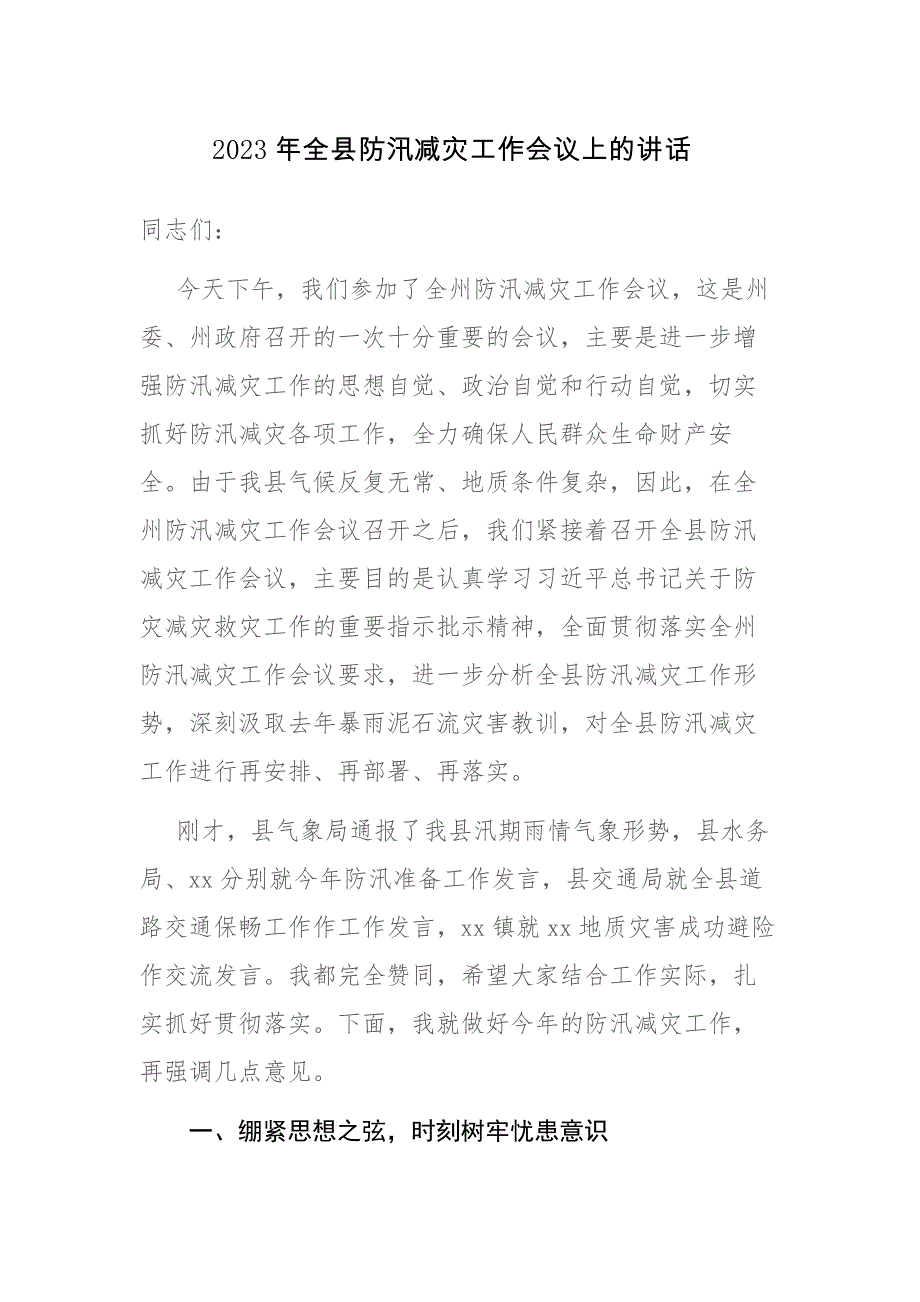 2023年全县防汛减灾工作会议上的讲话
同志们：
今天下午，我们参加了全州防汛减灾工作会议，这是州
委、州政府召开的一次十分重要的会议，主要是进一步增
强防汛减灾工作的思想自觉、政治自觉和行动自觉，切实
抓好防汛减灾各项工作，全力确保人民群众生命财产安
全。由于我县气候反复无常、地质条件复杂，因此，在全
州防汛减灾工作会议召开之后，我们紧接着召开全县防汛
减灾工作会议，主要目的是认真学习习近平总书记关于防
灾减灾救灾工作的重要指示批示精神，全面贯彻落实全州
防汛减灾工作会议要求，进一步分析全县防汛减灾工作形
势，深刻汲取去年暴雨泥石流灾害教训，对全县防汛减灾
工作进行再安排、再部署、再落实。
刚才，县气象局通报了我县汛期雨情气象形势，县水务
局、xx分别就今年防汛准备工作发言，县交通局就全县道
路交通保畅工作作工作发言，xx镇就xx地质灾害成功避险
作交流发言。我都完全赞同，希望大家结合工作实际，扎
实抓好贯彻落实。下面，我就做好今年的防汛减灾工作，
再强调几点意见。
一、绷紧思想之弦，时刻树牢忧患意识